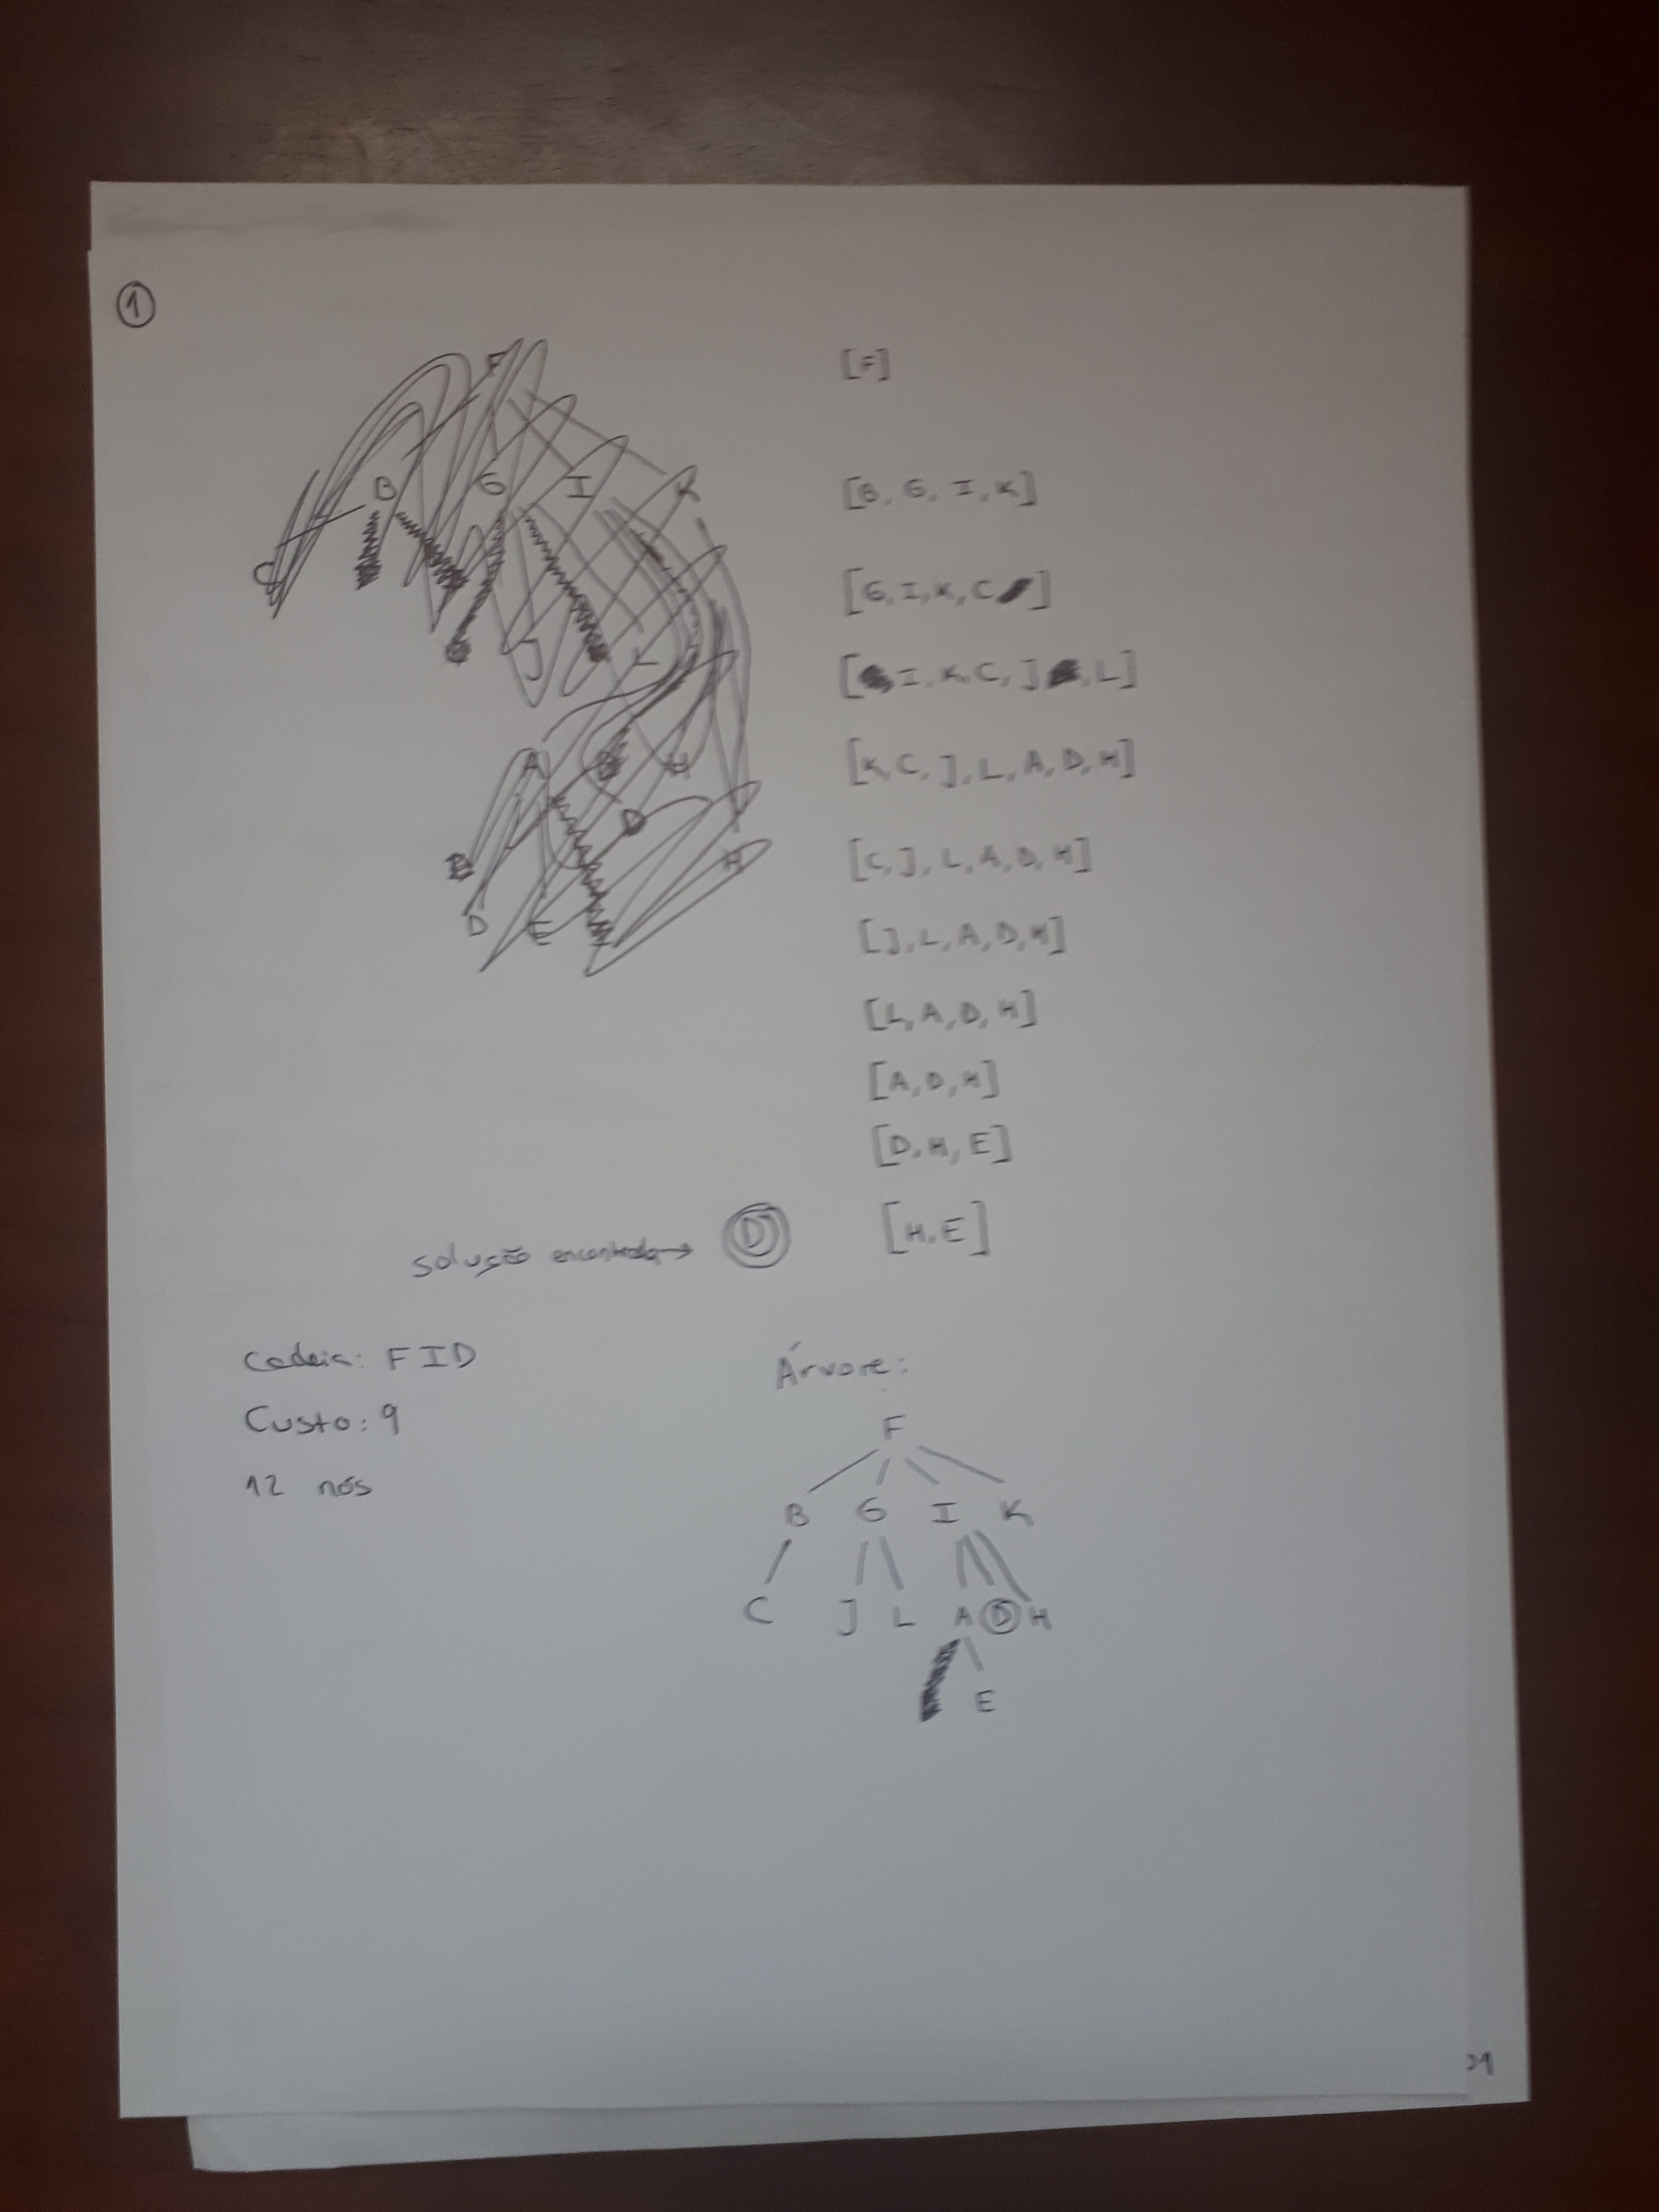 1
F
B G I K
C
J L
A H
D
B H
D E
[F]
[B, G, I, K]
[G, I, K, C]
[I, K, C, J, L]
[K, C, J, L, A, D, H]
[C, J, L, A, D, H]
[J, L, A, D, H]
[L, A, D, H]
[A, D, H]
[D, H, E]
solução encontrada→ D [H, E]
Cadeia: F I D
Custo: 9
12 nós
Árvore:
F
B G I K
C J L A D H
E